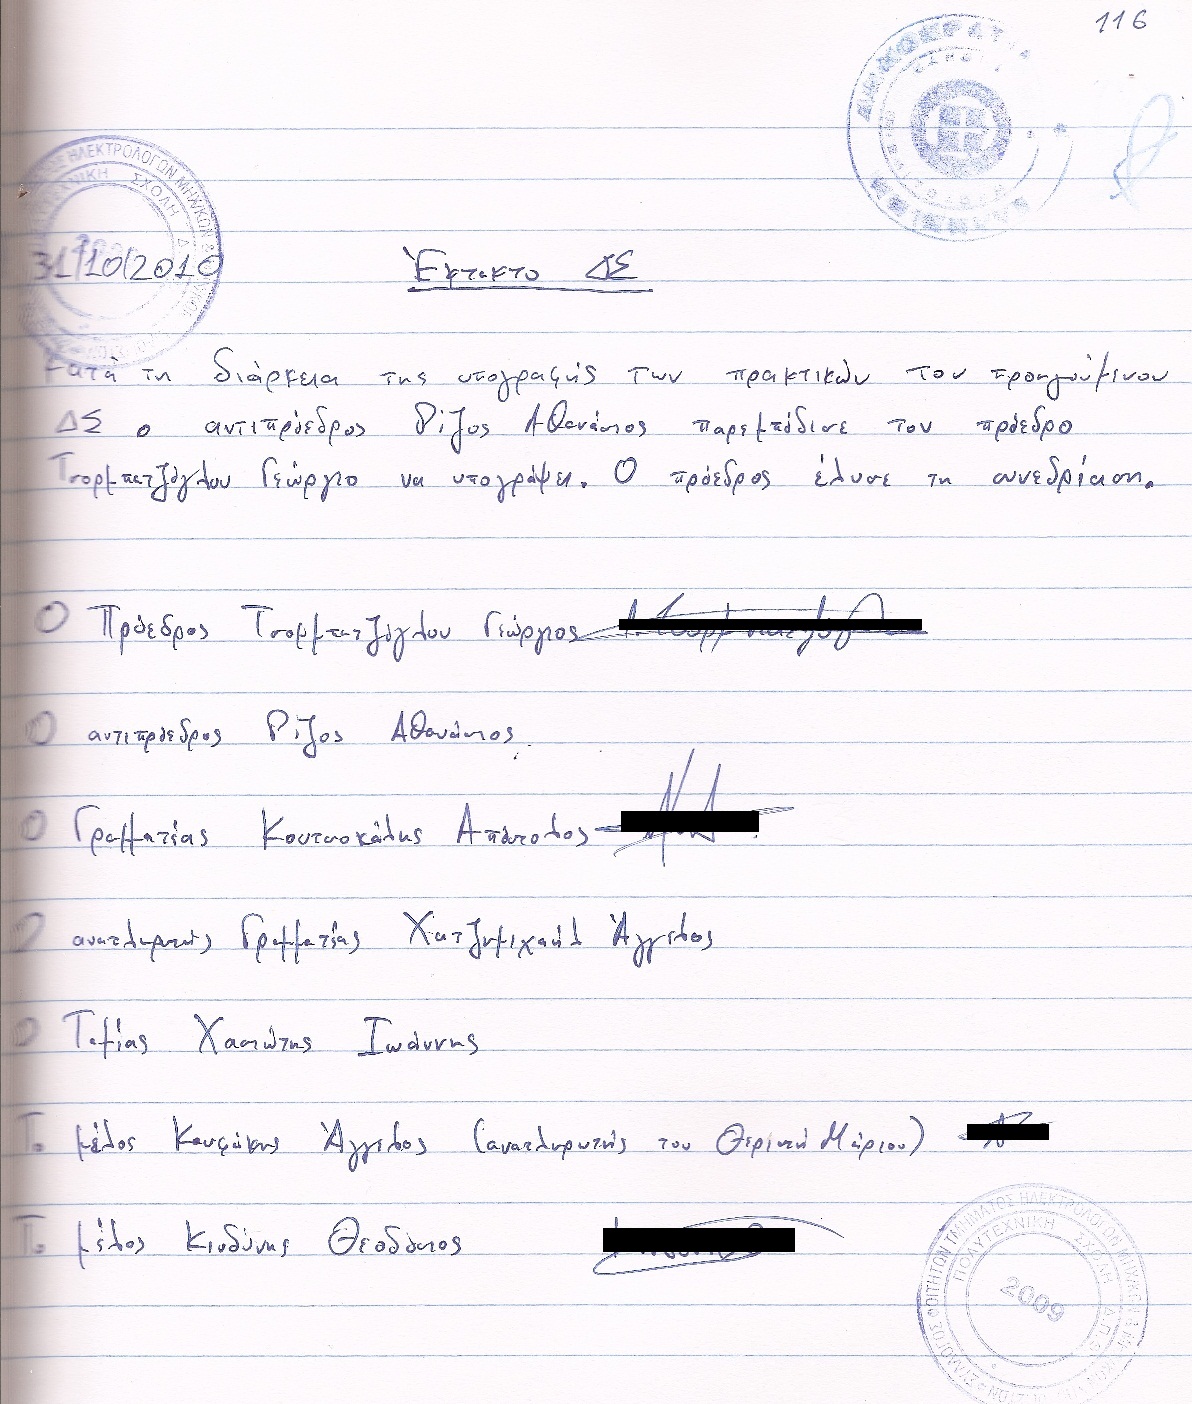 116
31/10/2010
Έκτακτο ΔΣ
Κατά τη διάρκεια της υπογραφής των πρακτικών του προηγούμενου
ΔΣ ο αντιπρόεδρος Ρίζος Αθανάσιος παρεμπόδισε τον πρόεδρο
Τσορμπατζόγλου Γεώργιο να υπογράψει. Ο πρόεδρος έλυσε τη συνεδρίαση.
Ο Πρόεδρος Τσορμπατζόγλου Γεώργιος
Ο αντιπρόεδρος Ρίζος Αθανάσιος
Ο Γραμματέας Κουτσοκάλης Απόστολος
Ο αναπληρωτής Γραμματέας Χατζημιχαήλ Άγγελος
Ο Ταμίας Χασιώτης Ιωάννης
Το μέλος Άγγελος (αναπληρωτής του Θερινή Μάριου)
Το μέλος Κινδύνης Θεοδόσιος
ΣΥΛΛΟΓΟΣ ΦΟΙΤΗΤΩΝ ΤΜΗΜΑΤΟΣ ΗΛΕΚΤΡΟΛΟΓΩΝ
ΠΟΛΥΤΕΧΝΙΚΗ ΣΧΟΛΗ Α.Π.Θ.
2009